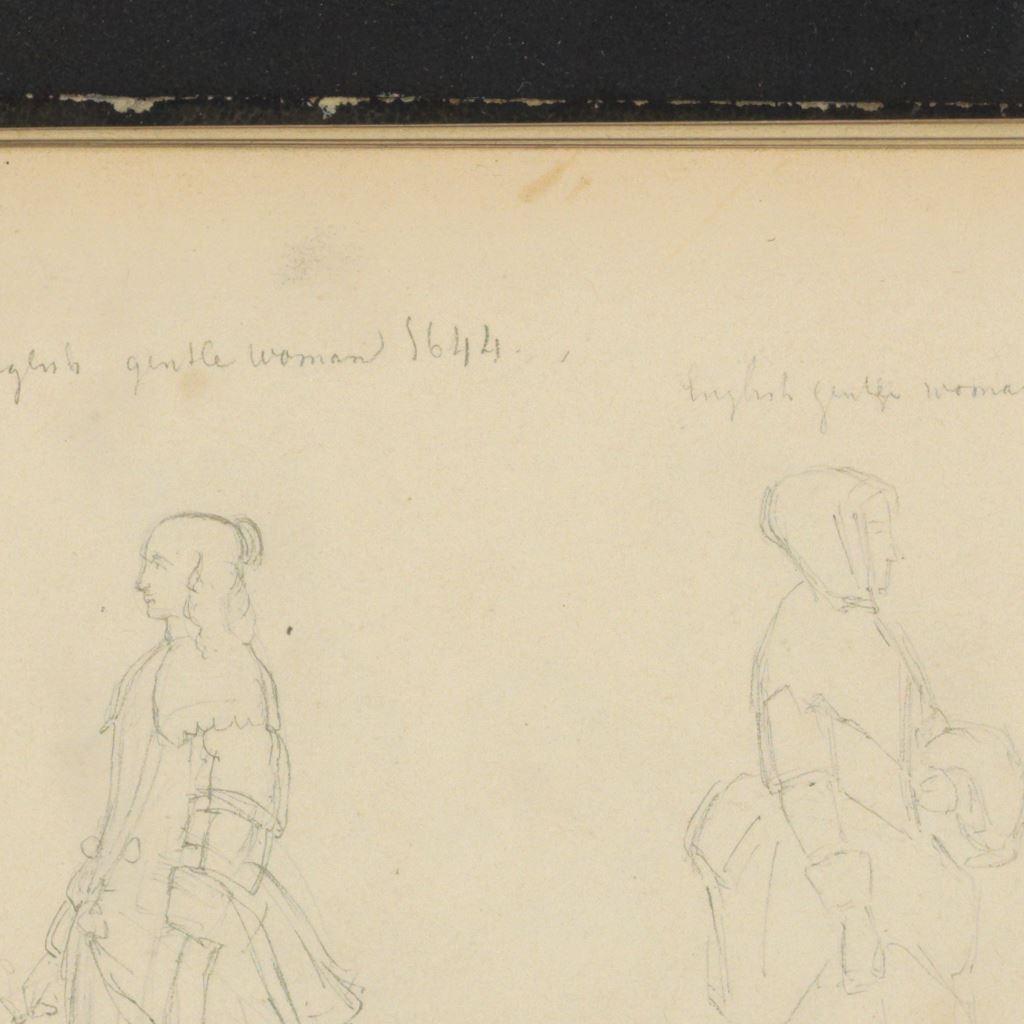 nglish gentle woman 1644.
English gentle woma